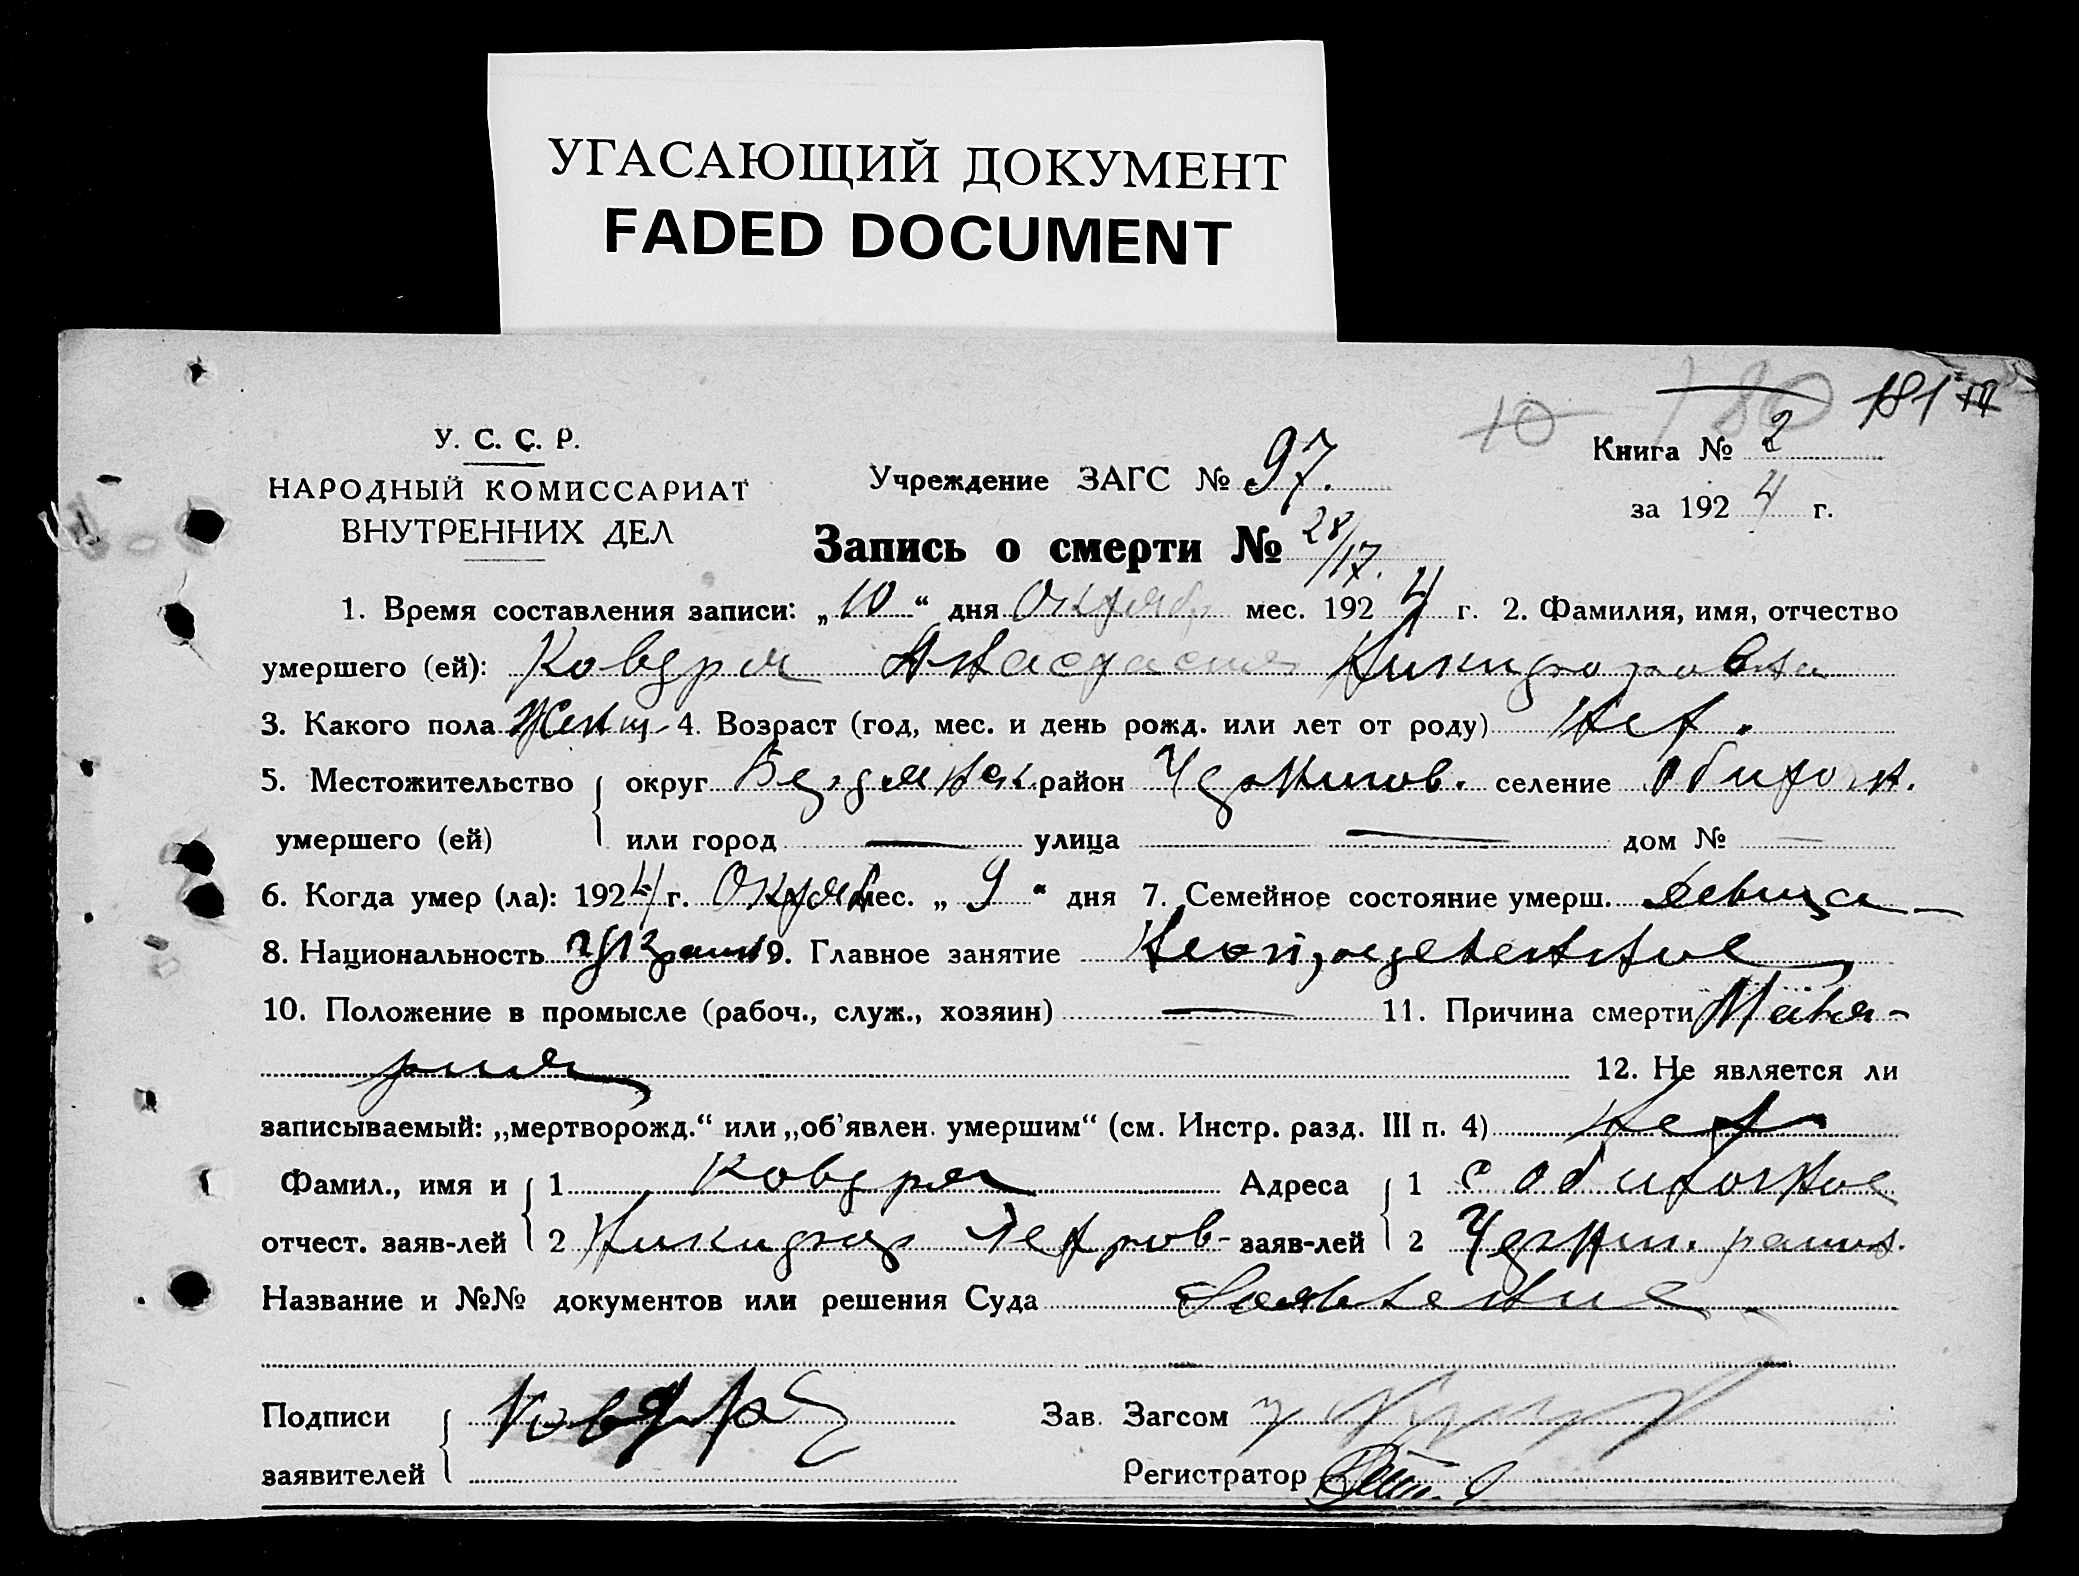 УГАСАЮЩИЙ ДОКУМЕНТ
FADED DOCUMENT
180 181
10
У. С. С. Р.
НАРОДНЫЙ КОМИССАРИАТ
ВНУТРЕННИХ ДЕЛ
Учреждение ЗАГС № 97.
Книга № 2
за 1924 г.
Запись о смерти № 28/17.
1. Время составления записи: „10“ дня Октяб мес. 1924 г. 2. Фамилия, имя, отчество
умершего (ей): Ковдря Анастасия Никифоровна
3. Какого пола Женщ 4. Возраст (год, мес. и день рожд. или лет от роду) Нет.
5. Местожительство округ Бердянск. район Черниgов. селение Обиточн.
умершего (ей) или город — улица — дом № —
6. Когда умер (ла): 1924 г. Октяб мес. „9“ дня 7. Семейное состояние умерш. девица
8. Национальность украин 9. Главное занятие
10. Положение в промысле (рабоч., служ., хозяин) — 11. Причина смерти Маля-
рия 12. Не является ли
записываемый: „мертворожд.“ или „об’явлен. умершим“ (см. Инстр. разд. III п. 4) Нет
Фамил., имя и 1 Ковдря Адреса 1 с Обиточное
отчест. заяв-лей 2 Никифор Петров- заяв-лей 2 Черниг. район.
Название и №№ документов или решения Суда Заявление
Подписи Ковдря Зав. Загсом
заявителей Регистратор